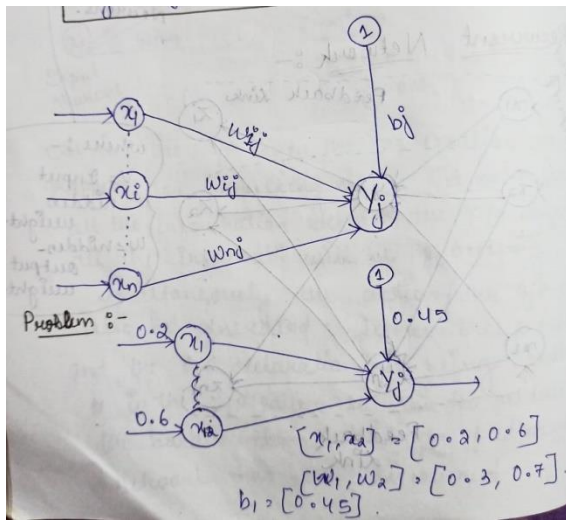 1
bj
x1
w1j
xi
wij
Yj
xn
wnj
1
Problem :-
0.45
0.2
x1
Yj
0.6
x2
[x1, x2] = [0.2, 0.6]
[w1, w2] = [0.3, 0.7].
b1 = [0.45]